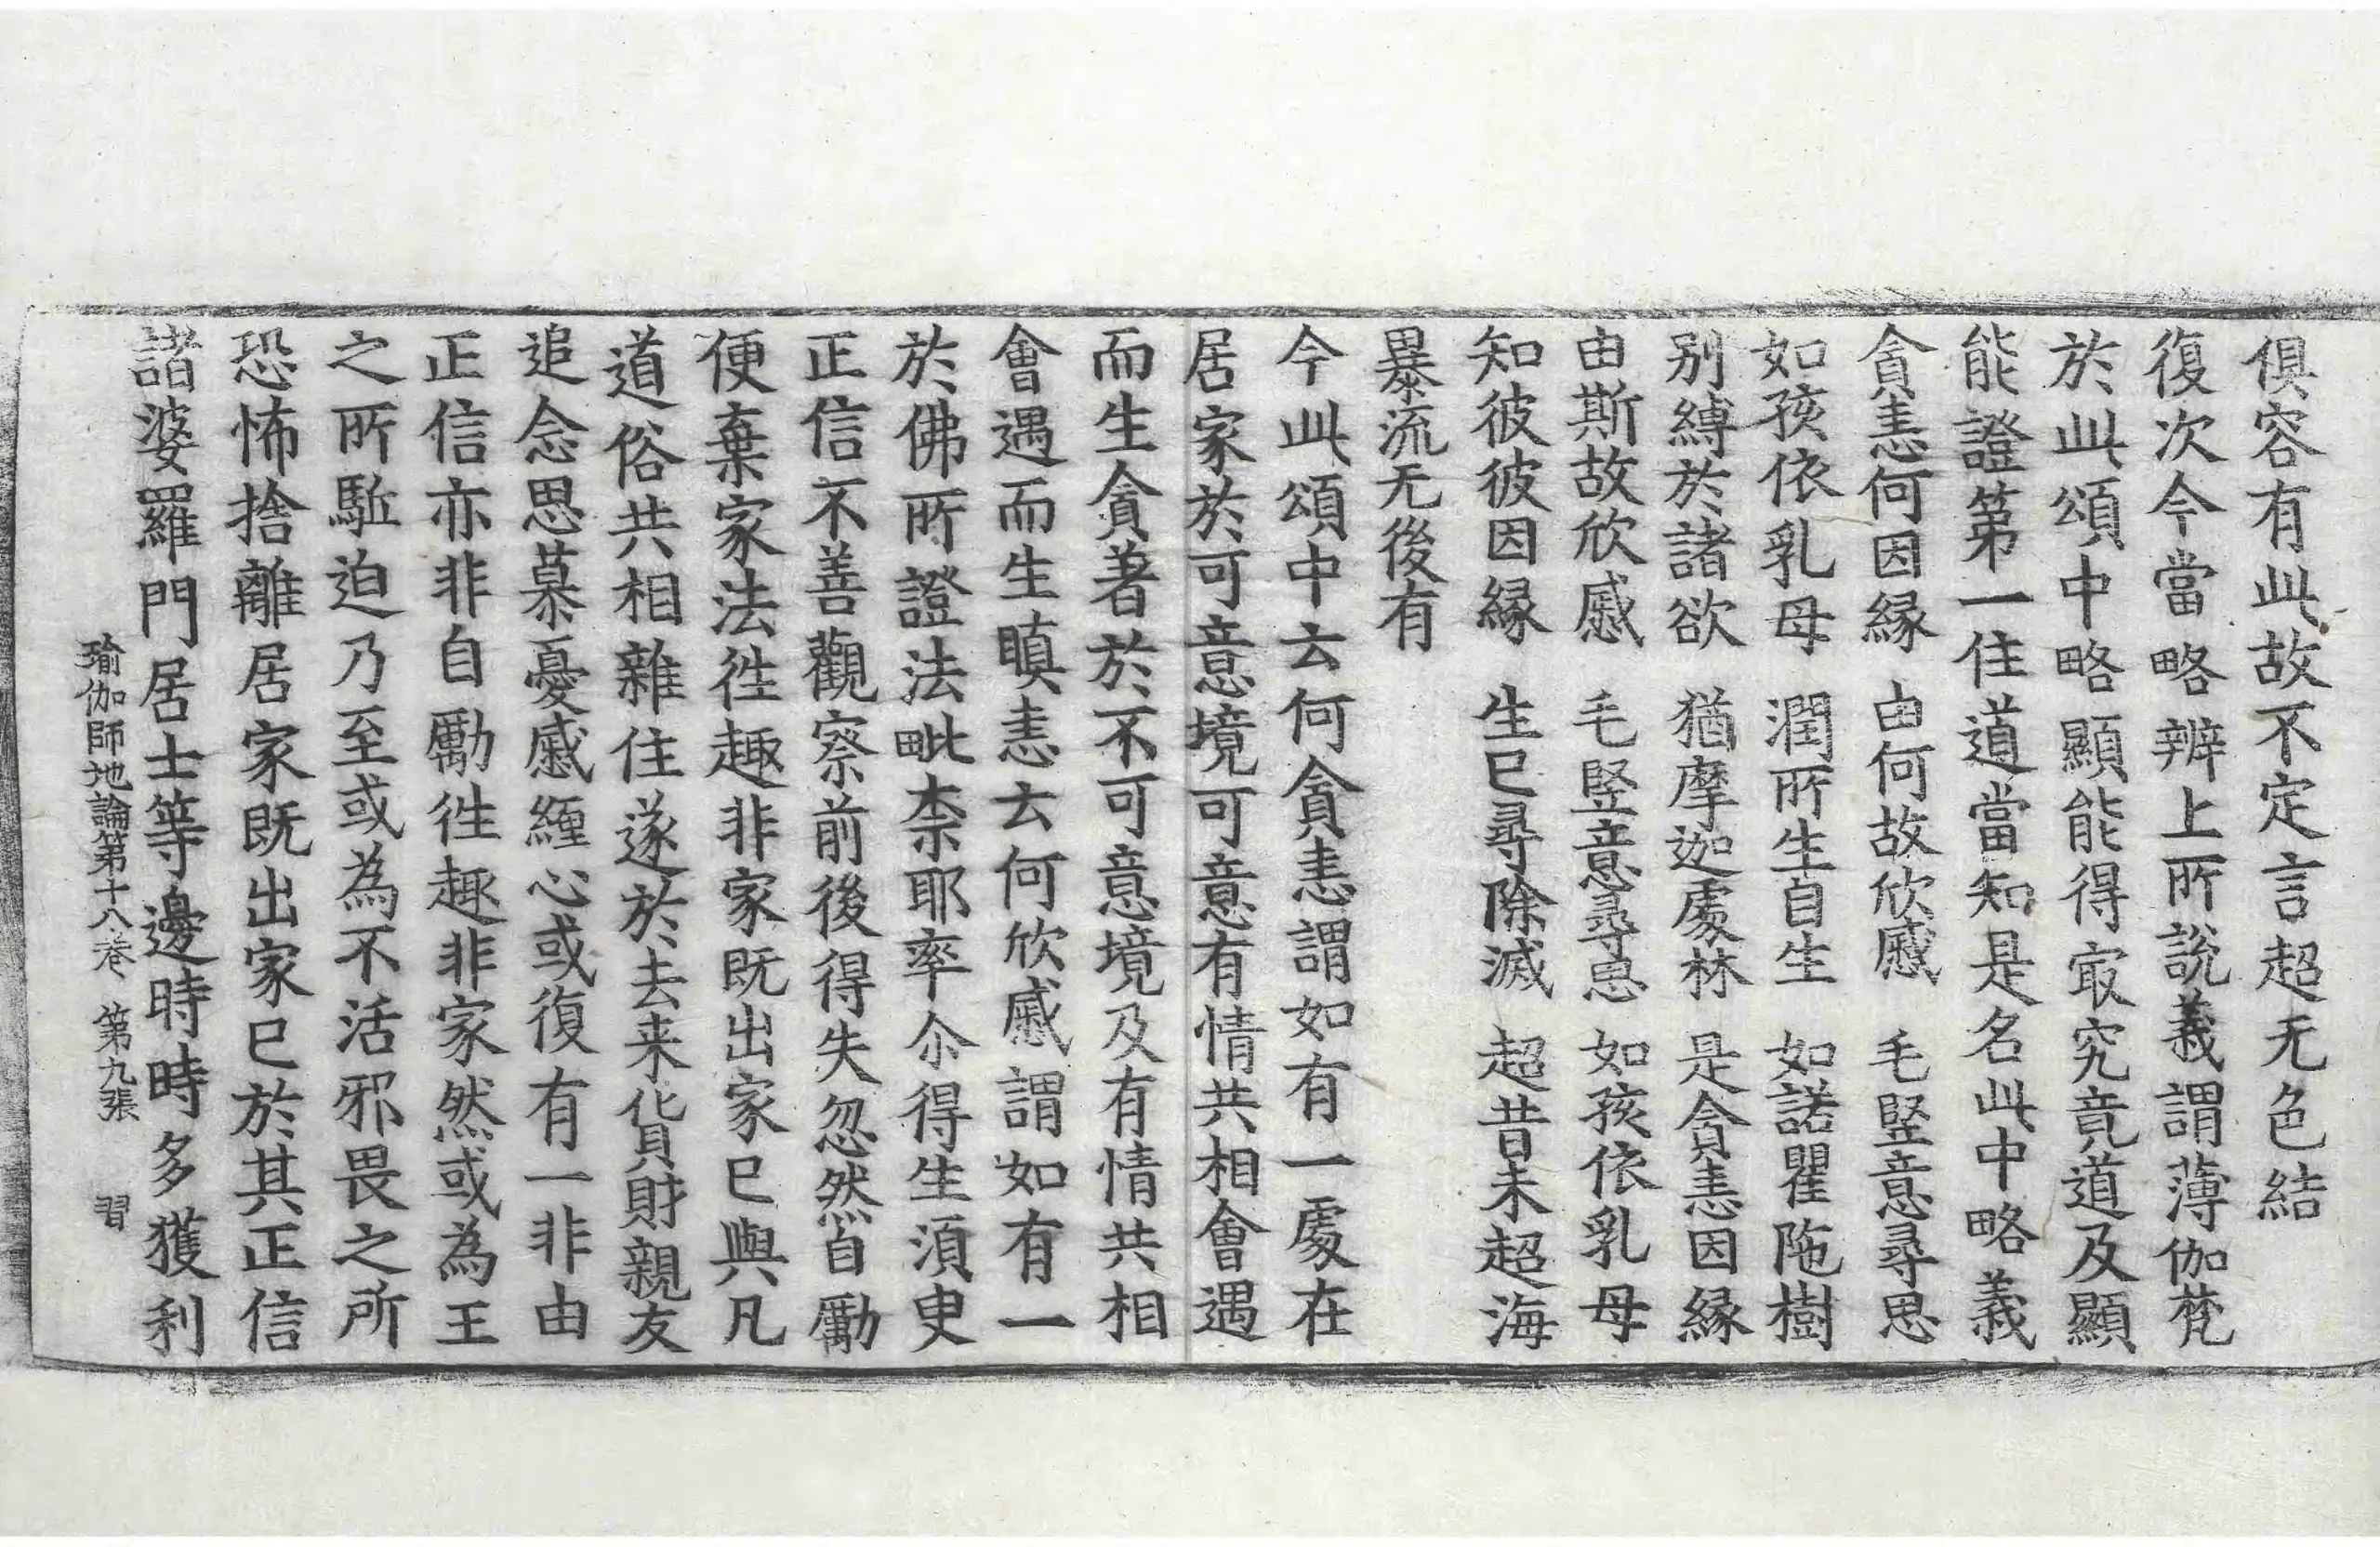 俱容有此故不定言超无色結
復次今當略辨上所說義謂薄伽梵
於此頌中略顯能得㝡究竟道及顯
能證第一住道當知是名此中略義
貪恚何因縁　由何故欣慼　毛竪意尋思
如孩依乳母　潤所生自生　如諾瞿陁樹
别縛於諸欲　猶摩迦處林　是貪恚因縁
由斯故欣慼　毛竪意尋思　如孩依乳母
知彼彼因縁　生已尋除滅　超昔未超海
暴流无後有
今此頌中云何貪恚謂如有一處在
居家於可意境可意有情共相會遇
而生貪著於不可意境及有情共相
會遇而生瞋恚云何欣慼謂如有一
於佛所證法毗柰耶率尒得生須臾
正信不善觀察前後得失忽然自勵
便棄家法徃趣非家既出家已與凡
道俗共相雜住遂於去来貨財親友
追念思慕憂慼纏心或復有一非由
正信亦非自勵徃趣非家然或為王
之所駈迫乃至或為不活邪畏之所
恐怖捨離居家既出家已於其正信
諸婆羅門居士等邊時時多獲利
瑜伽師地論第十八卷　第九張　習